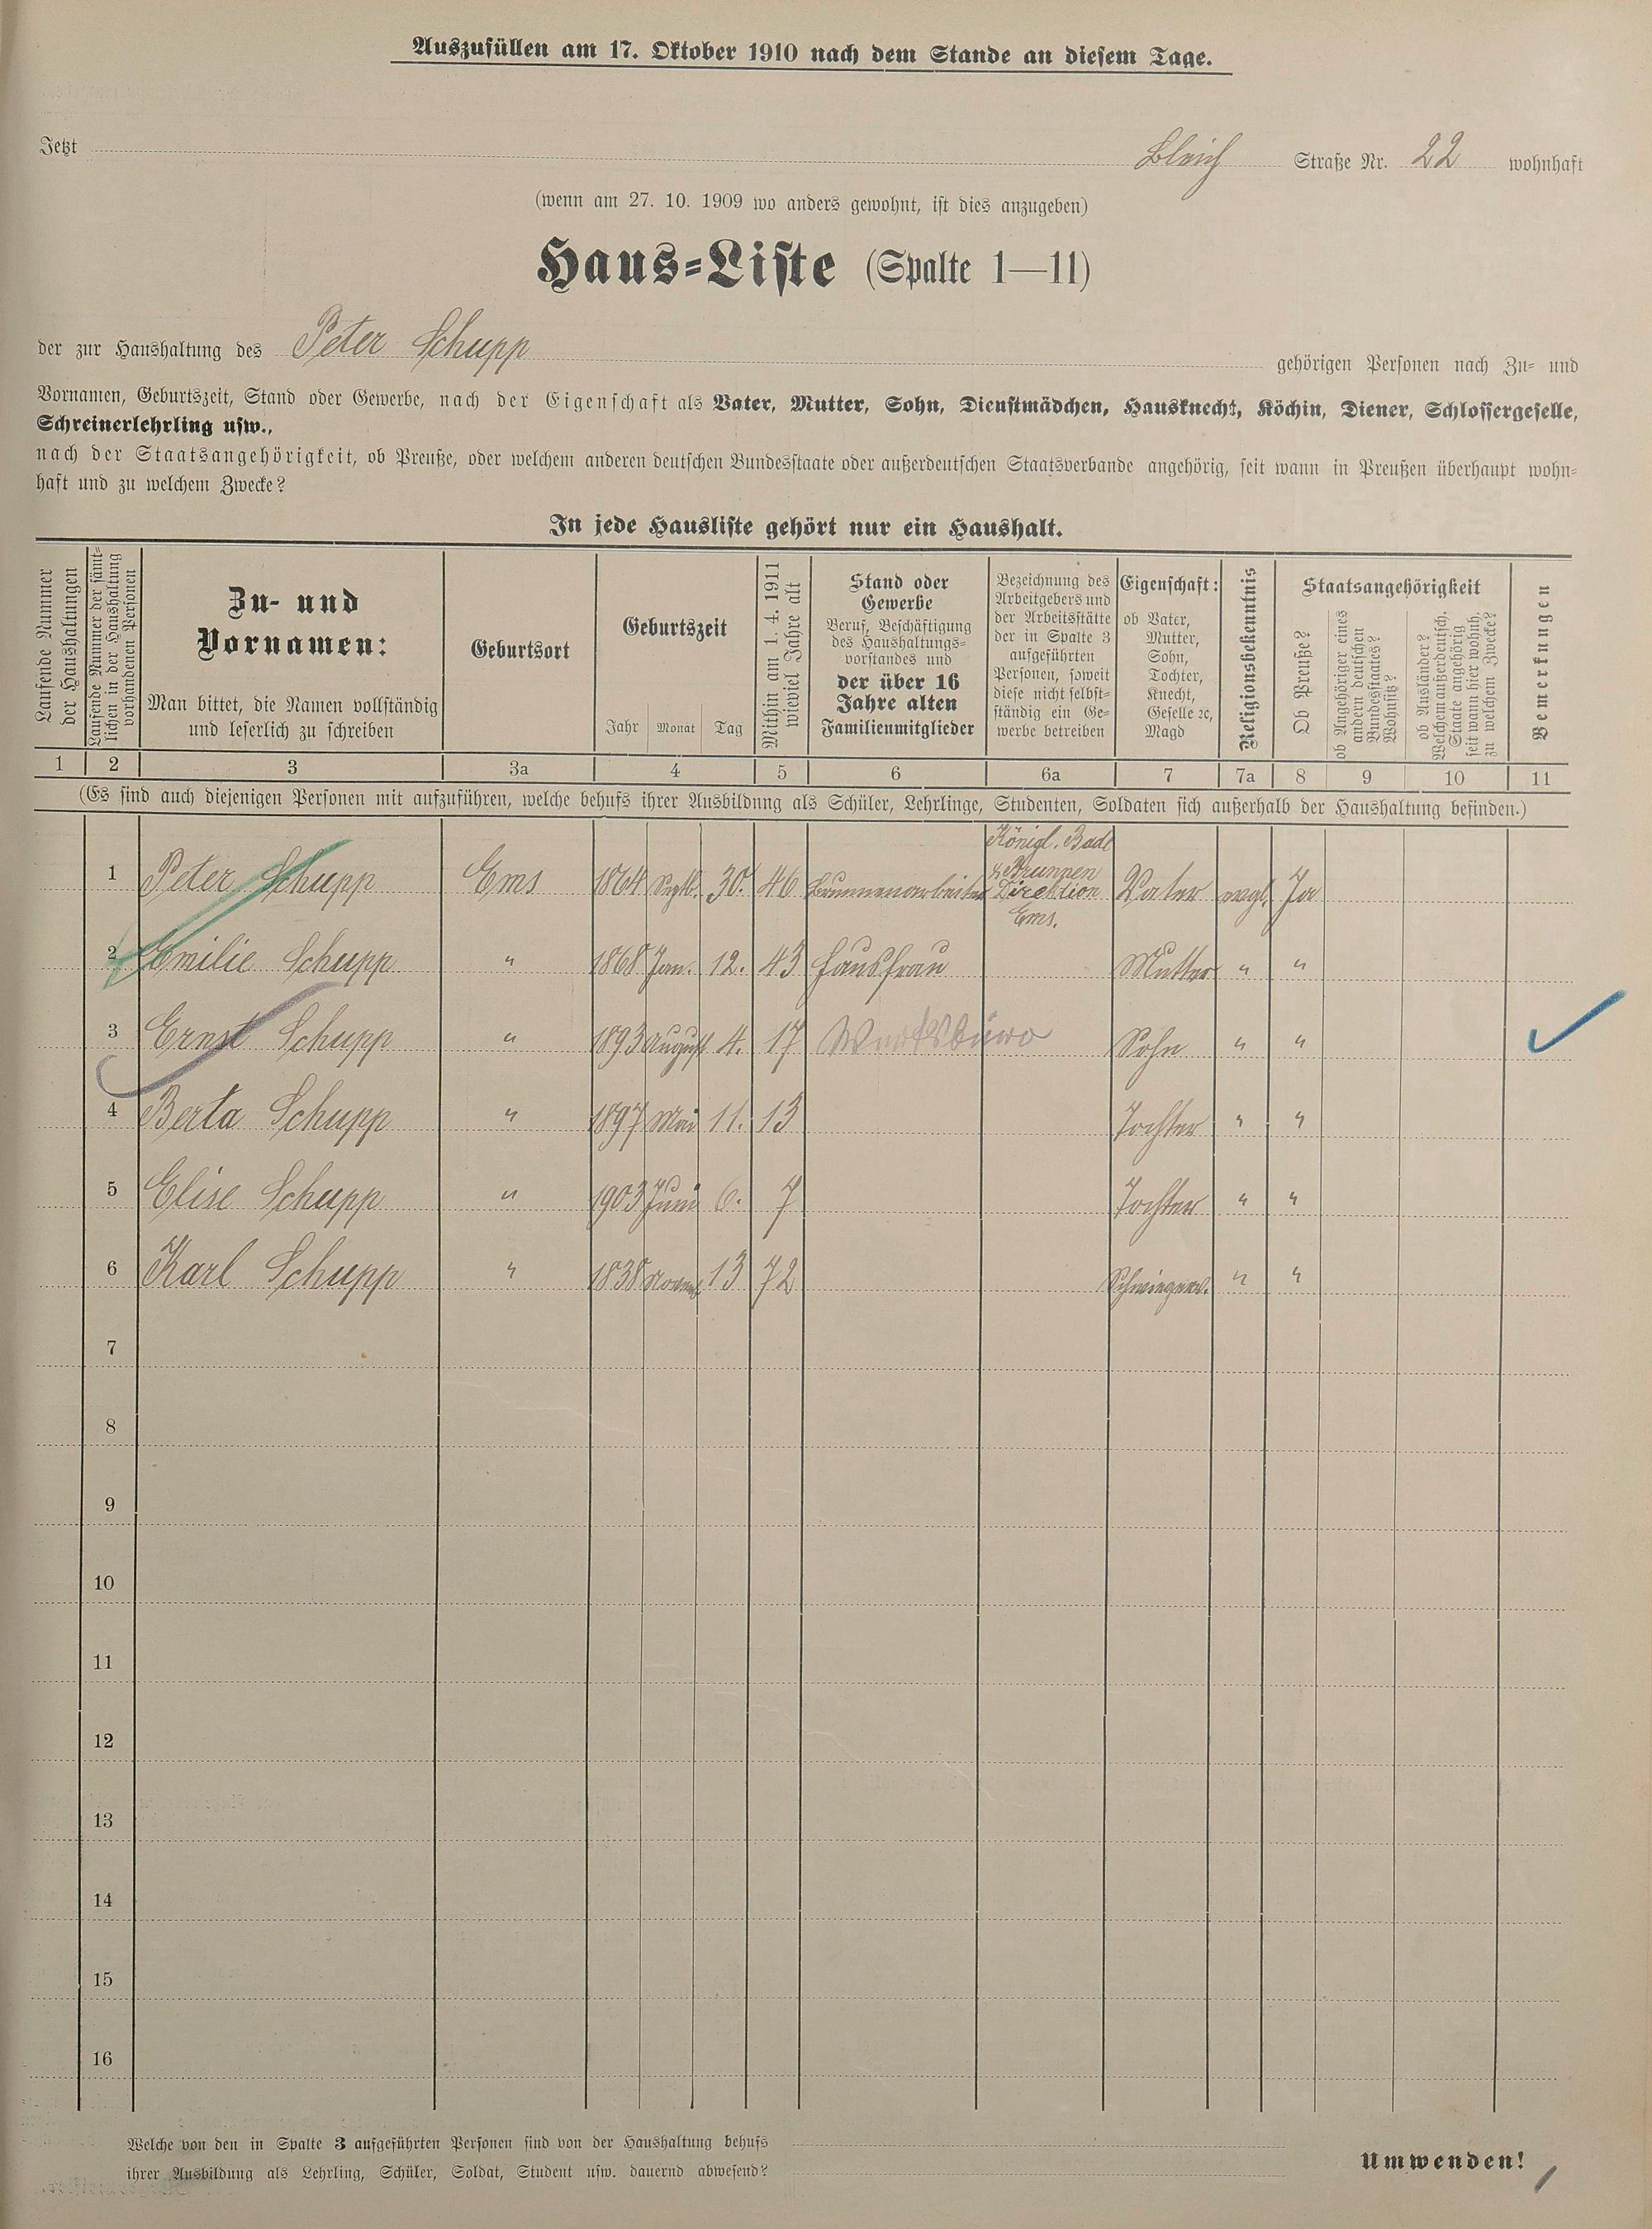 Auszufüllen am 17. Oktober 1910 nach dem Stande an diesem Tage.
Jetzt Bleich Straße Nr. 22 wohnhaft
(wenn am 27. 10. 1909 wo anders gewohnt, ist dies anzugeben)
Haus-Liste (Spalte 1—11)
der zur Haushaltung des Peter Schupp gehörigen Personen nach Zu- und
Vornamen, Geburtszeit, Stand oder Gewerbe, nach der Eigenschaft als Vater, Mutter, Sohn, Dienstmädchen, Hausknecht, Köchin, Diener, Schlossergeselle,
Schreinerlehrling usw.,
nach der Staatsangehörigkeit, ob Preuße, oder welchem anderen deutschen Bundesstaate oder außerdeutschen Staatsverbande angehörig, seit wann in Preußen überhaupt wohn-
haft und zu welchem Zwecke?
In jede Hausliste gehört nur ein Haushalt.
Laufende Nummer
der Haushaltungen
Laufende Nummer der sämt-
lichen in der Haushaltung
vorhandenen Personen
Zu- und
Vornamen:
Man bittet, die Namen vollständig
und leserlich zu schreiben
Geburtsort
Geburtszeit
Jahr Monat Tag
Mithin am 1. 4. 1911
wieviel Jahre alt
Stand oder
Gewerbe
Beruf, Beschäftigung
des Haushaltungs-
vorstandes und
der über 16
Jahre alten
Familienmitglieder
Bezeichnung des
Arbeitgebers und
der Arbeitsstätte
der in Spalte 3
aufgeführten
Personen, soweit
diese nicht selbst-
ständig ein Ge-
werbe betreiben
Eigenschaft:
ob Vater,
Mutter,
Sohn,
Tochter,
Knecht,
Geselle ꝛc,
Magd
Religionsbekenntnis
Staatsangehörigkeit
Ob Preuße?
ob Angehöriger eines
andern deutschen
Bundesstaates?
Wohnsitz?
ob Ausländer?
Welchem außerdeutsch.
Staate angehörig
seit wann hier wohnh.
zu welchem Zwecke?
Bemerkungen
1 2 3 3a 4 5 6 6a 7 7a 8 9 10 11
(Es sind auch diejenigen Personen mit aufzuführen, welche behufs ihrer Ausbildung als Schüler, Lehrlinge, Studenten, Soldaten sich außerhalb der Haushaltung befinden.)
1 Peter Schupp Ems 1864 Septb. 30. 46 Brunnenarbeiter Königl. Bade u Brunnen Direktion Ems. Vater evgl. Ja
2 Emilie Schupp " 1868 Jan. 12. 43 Hausfrau Mutter " "
3 Ernst Schupp " 1893 August 4. 17 Sohn " "
4 Berta Schupp " 1897 Mai 11. 13 Tochter " "
5 Elise Schupp " 1903 Juni 6. 7 Tochter " "
6 Karl Schupp " 1838 Novemb 13 72 Schwiegerv. " "
7
8
9
10
11
12
13
14
15
16
Welche von den in Spalte 3 aufgeführten Personen sind von der Haushaltung behufs
ihrer Ausbildung als Lehrling, Schüler, Soldat, Student usw. dauernd abwesend?
Umwenden!